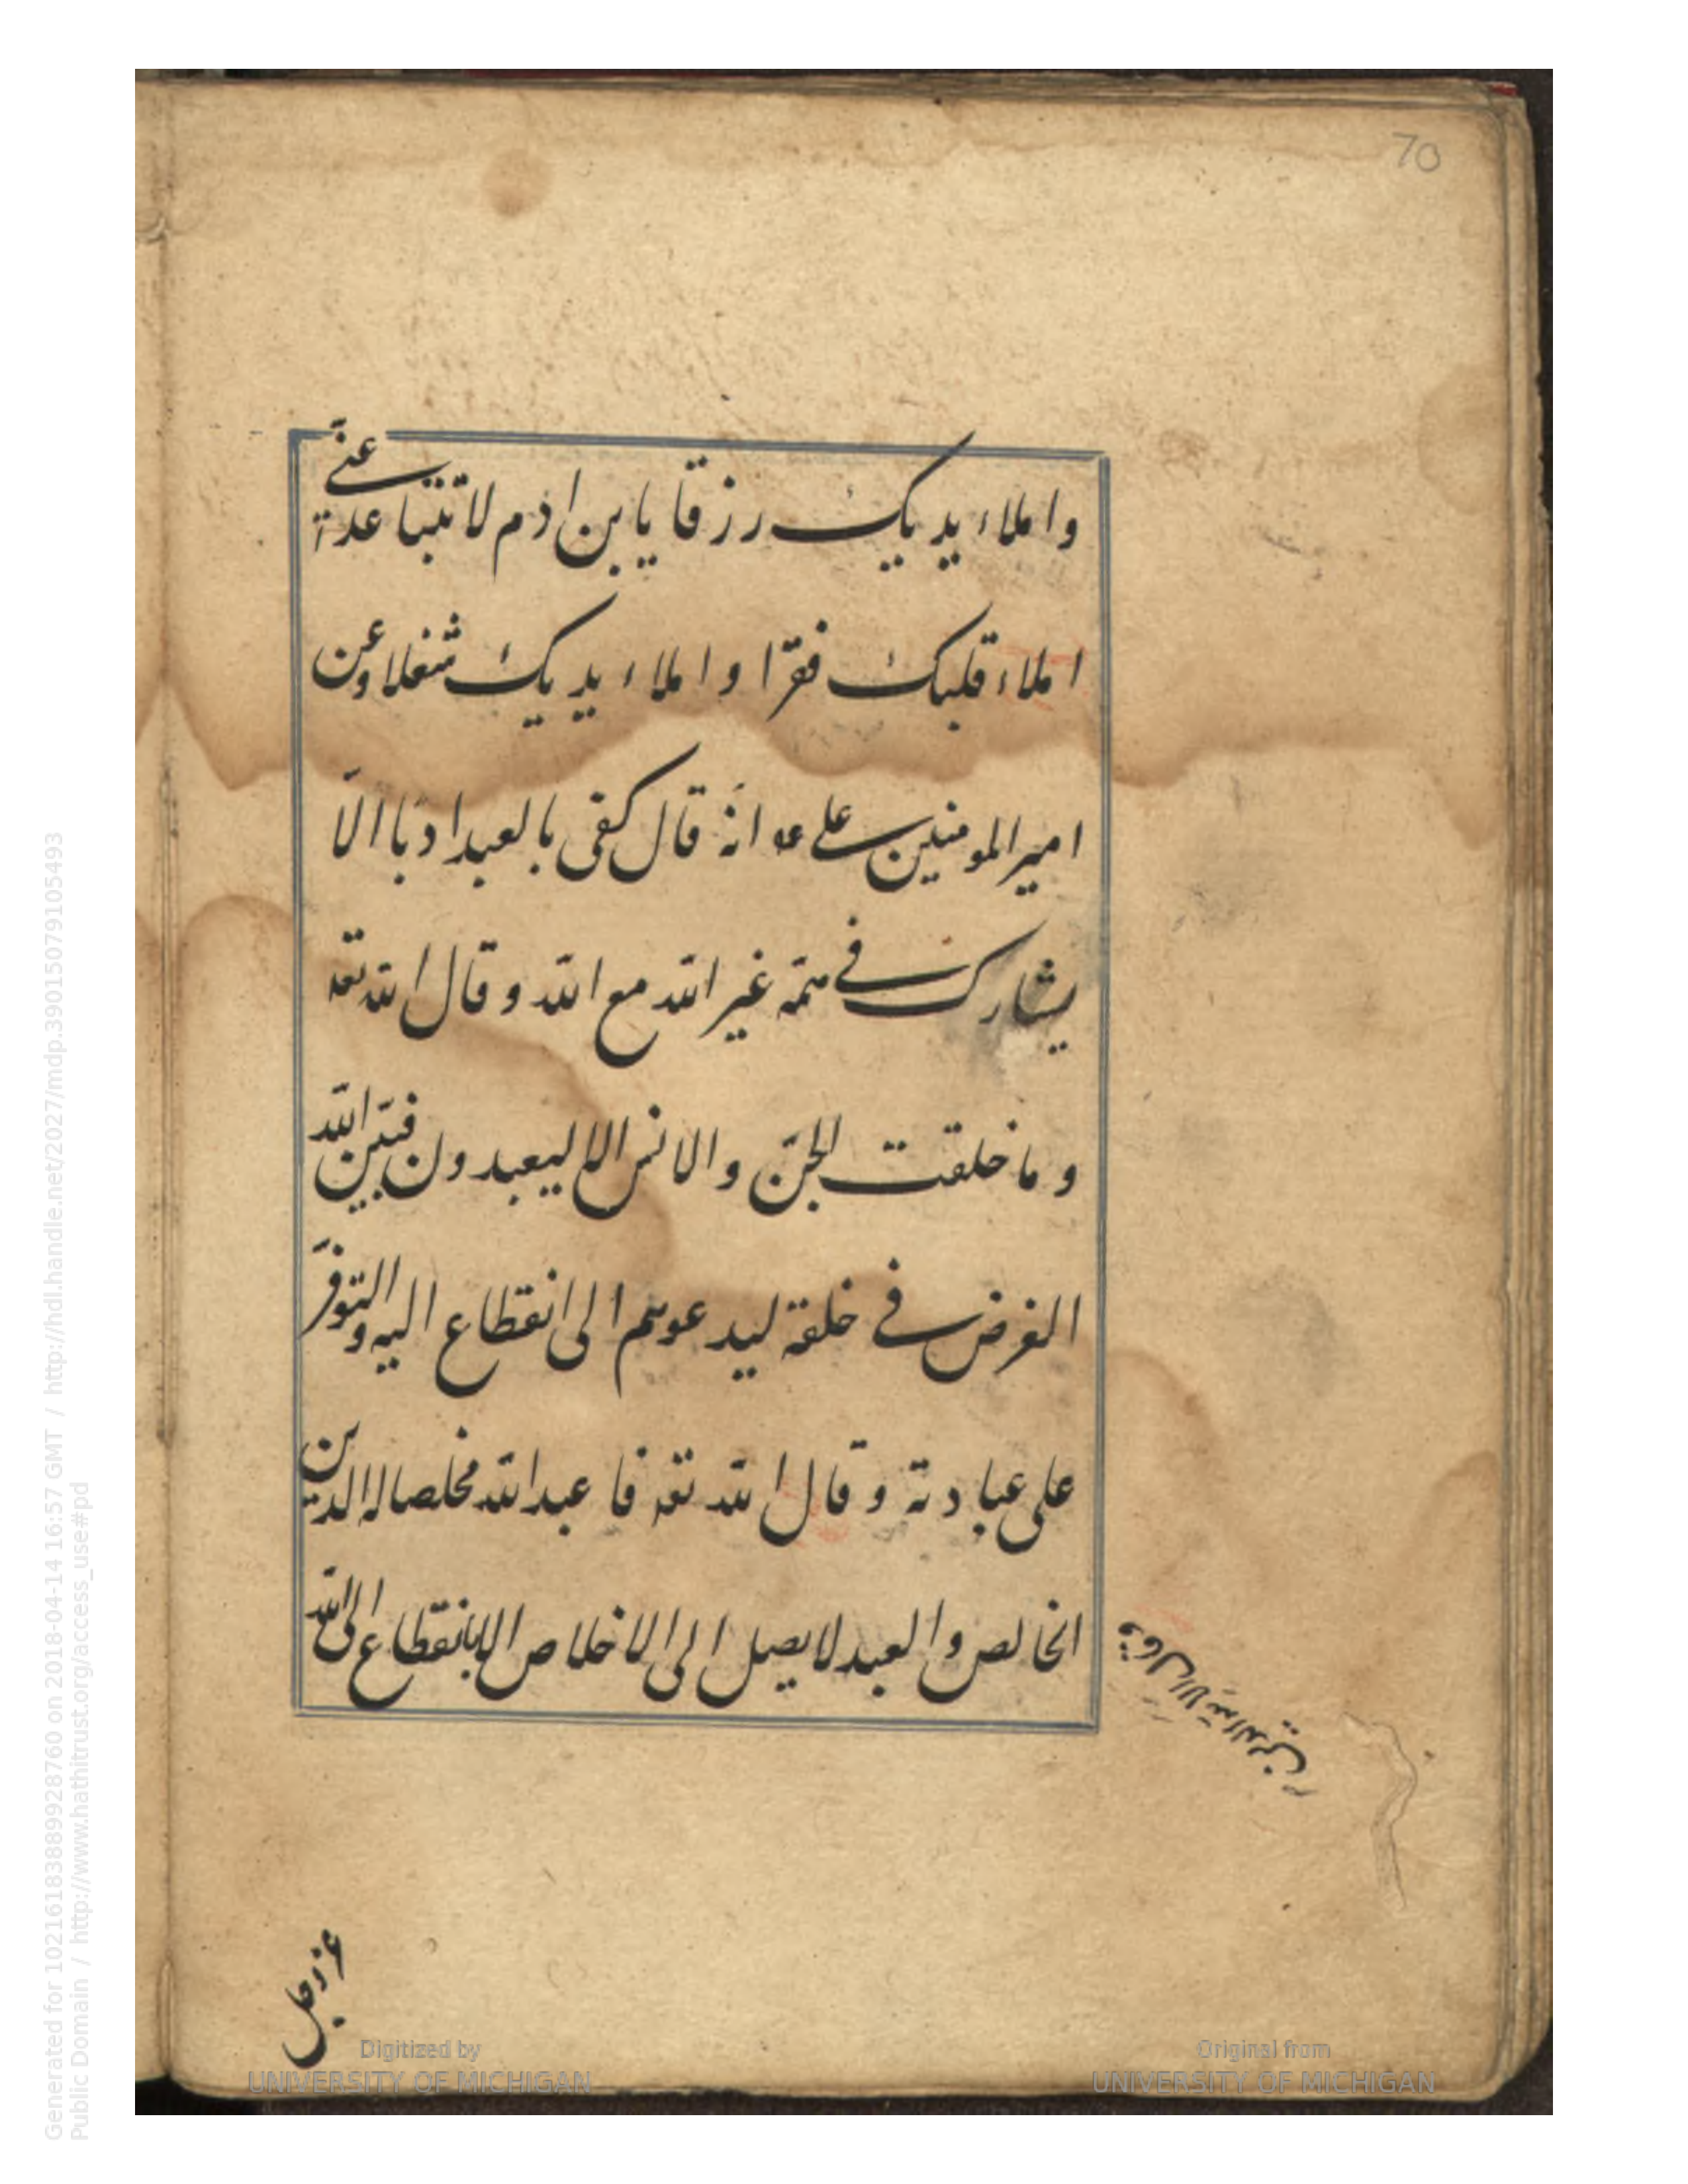 70
واملاء يديك رزقا يا بن ادم لا تتباعد عنّي
املاء قلبك فقرا واملاء يديك شغلا وعن
امير المومنين علي ع انّه قال كفى بالعبد ادبا الّا
يشارك في همّه غير اللّه مع اللّه و قال اللّه تعه
و ما خلقت الجنّ والانس الا ليعبدون فبيّن اللّه
الغرض في خلقة ليدعوهم الى انقطاع اليه والتوفّر
على عبادته و قال اللّه تعه فاعبد اللّه مخلصا له الدين
الخالص والعبد لا يصل الى الاخلاص الا بانقطاع الى اللّه
وقال الا للّه الدين
عزوجل
Digitized by
UNIVERSITY OF MICHIGAN
Original from
UNIVERSITY OF MICHIGAN
Generated for 102161838899928760 on 2018-04-14 16:57 GMT / http://hdl.handle.net/2027/mdp.39015079105493
Public Domain / http://www.hathitrust.org/access_use#pd